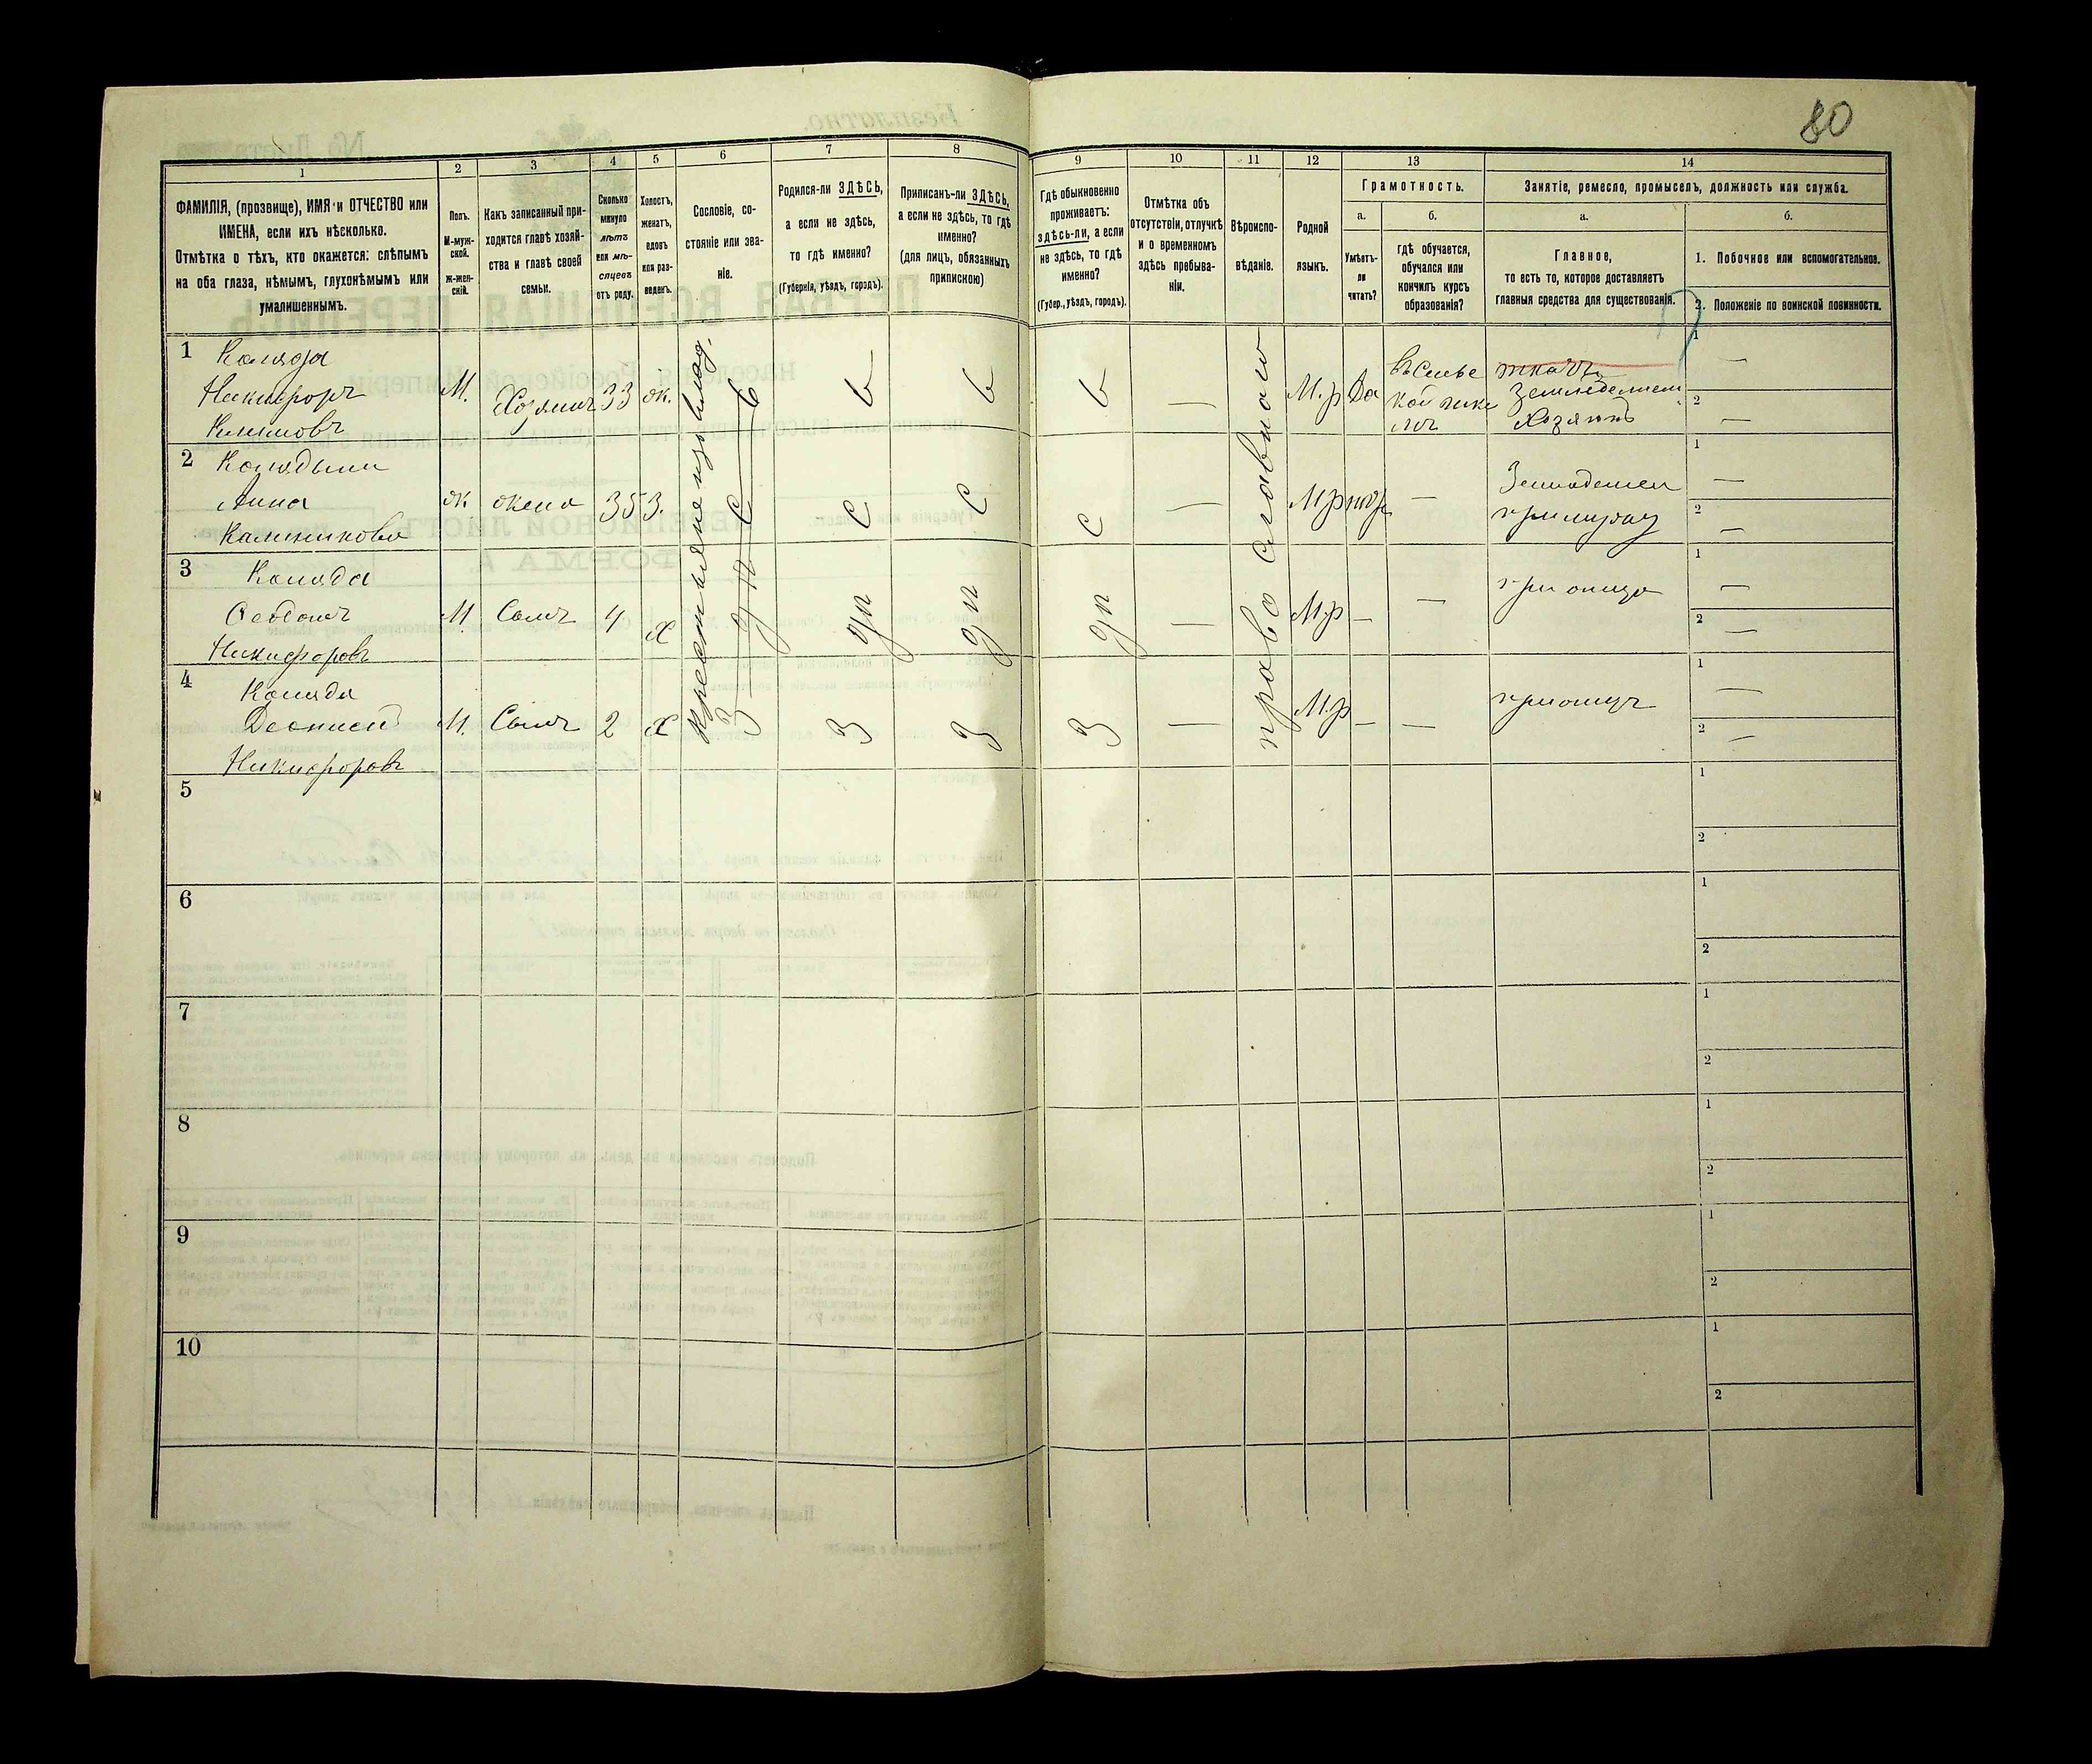 80
1
2
3
4
5
6
7
8
9
10
11
12
13
14
ФАМИЛІЯ, (прозвище), ИМЯ и ОТЧЕСТВО или
ИМЕНА, если ихъ нѣсколько.
Отмѣтка о тѣхъ, кто окажется: слѣпымъ
на оба глаза, нѣмымъ, глухонѣмымъ или
умалишеннымъ.
Полъ.
М-муж-
ской.
Ж-жен-
скій.
Какъ записанный при-
ходится главѣ хозяй-
ства и главѣ своей
семьи.
Сколько
минуло
лѣтъ
или мѣ-
сяцевъ
отъ роду.
Холостъ,
женатъ,
вдовъ
или раз-
веденъ.
Сословіе, со-
стояніе или зва-
ніе.
Родился-ли ЗДѢСЬ,
а если не здѣсь,
то гдѣ именно?
(Губернія, уѣздъ, городъ).
Приписанъ-ли ЗДѢСЬ,
а если не здѣсь, то гдѣ
именно?
(для лицъ, обязанныхъ
припискою)
Гдѣ обыкновенно
проживаетъ:
здѣсь-ли, а если
не здѣсь, то гдѣ
именно?
(Губер., уѣздъ, городъ).
Отмѣтка объ
отсутствіи, отлучкѣ
и о временномъ
здѣсь пребыва-
ніи.
Вѣроиспо-
вѣданіе.
Родной
языкъ.
Грамотность.
а.
Умѣетъ-
ли
читать?
б.
гдѣ обучается,
обучался или
кончилъ курсъ
образованія?
Занятіе, ремесло, промыселъ, должность или служба.
а.
Главное,
то есть то, которое доставляетъ
главныя средства для существованія.
б.
1. Побочное или вспомогательное.
2. Положеніе по воинской повинности.
1 Коляда
Никифоръ
Климовъ
М. Хозяинъ 33 ж.
Крестьяне изъ влад.
М.р Да
ткачъ
Хозяинъ
1 —
2 —
православное
2
Анна
ж жена 35 з.
М.р
—
1 —
2 —
3 Коляда
Никифоровъ
М. Сынъ 4 х
— М.р — —
при отцѣ
1 —
2 —
4 Коляда
Никифоровъ
М. Сынъ 2 х
— М.р — —
при отцѣ
1 —
2 —
5
1
2
6
1
2
7
1
2
8
1
2
9
1
2
10
1
2